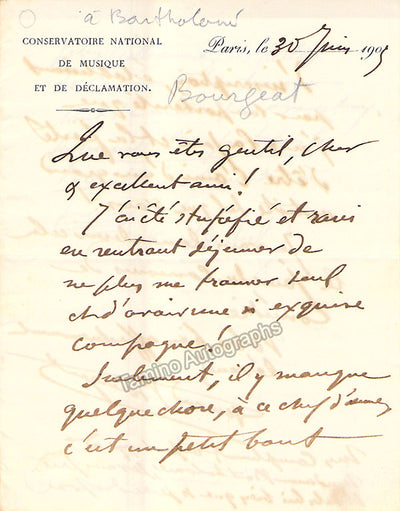 à Bartholoni
CONSERVATOIRE NATIONAL
DE MUSIQUE
ET DE DÉCLAMATION.
Paris, le 30 Juin 1905
Bourgeat
Que vous êtes gentil, cher
& excellent ami!
J'ai été stupéfié et ravi
en rentrant déjeuner de
ne plus me trouver seul
et d'avoir une si exquise
compagne!
Seulement, il y manque
quelque chose, à ce chef d'œuvre,
c'est un petit bout
Tamino Autographs